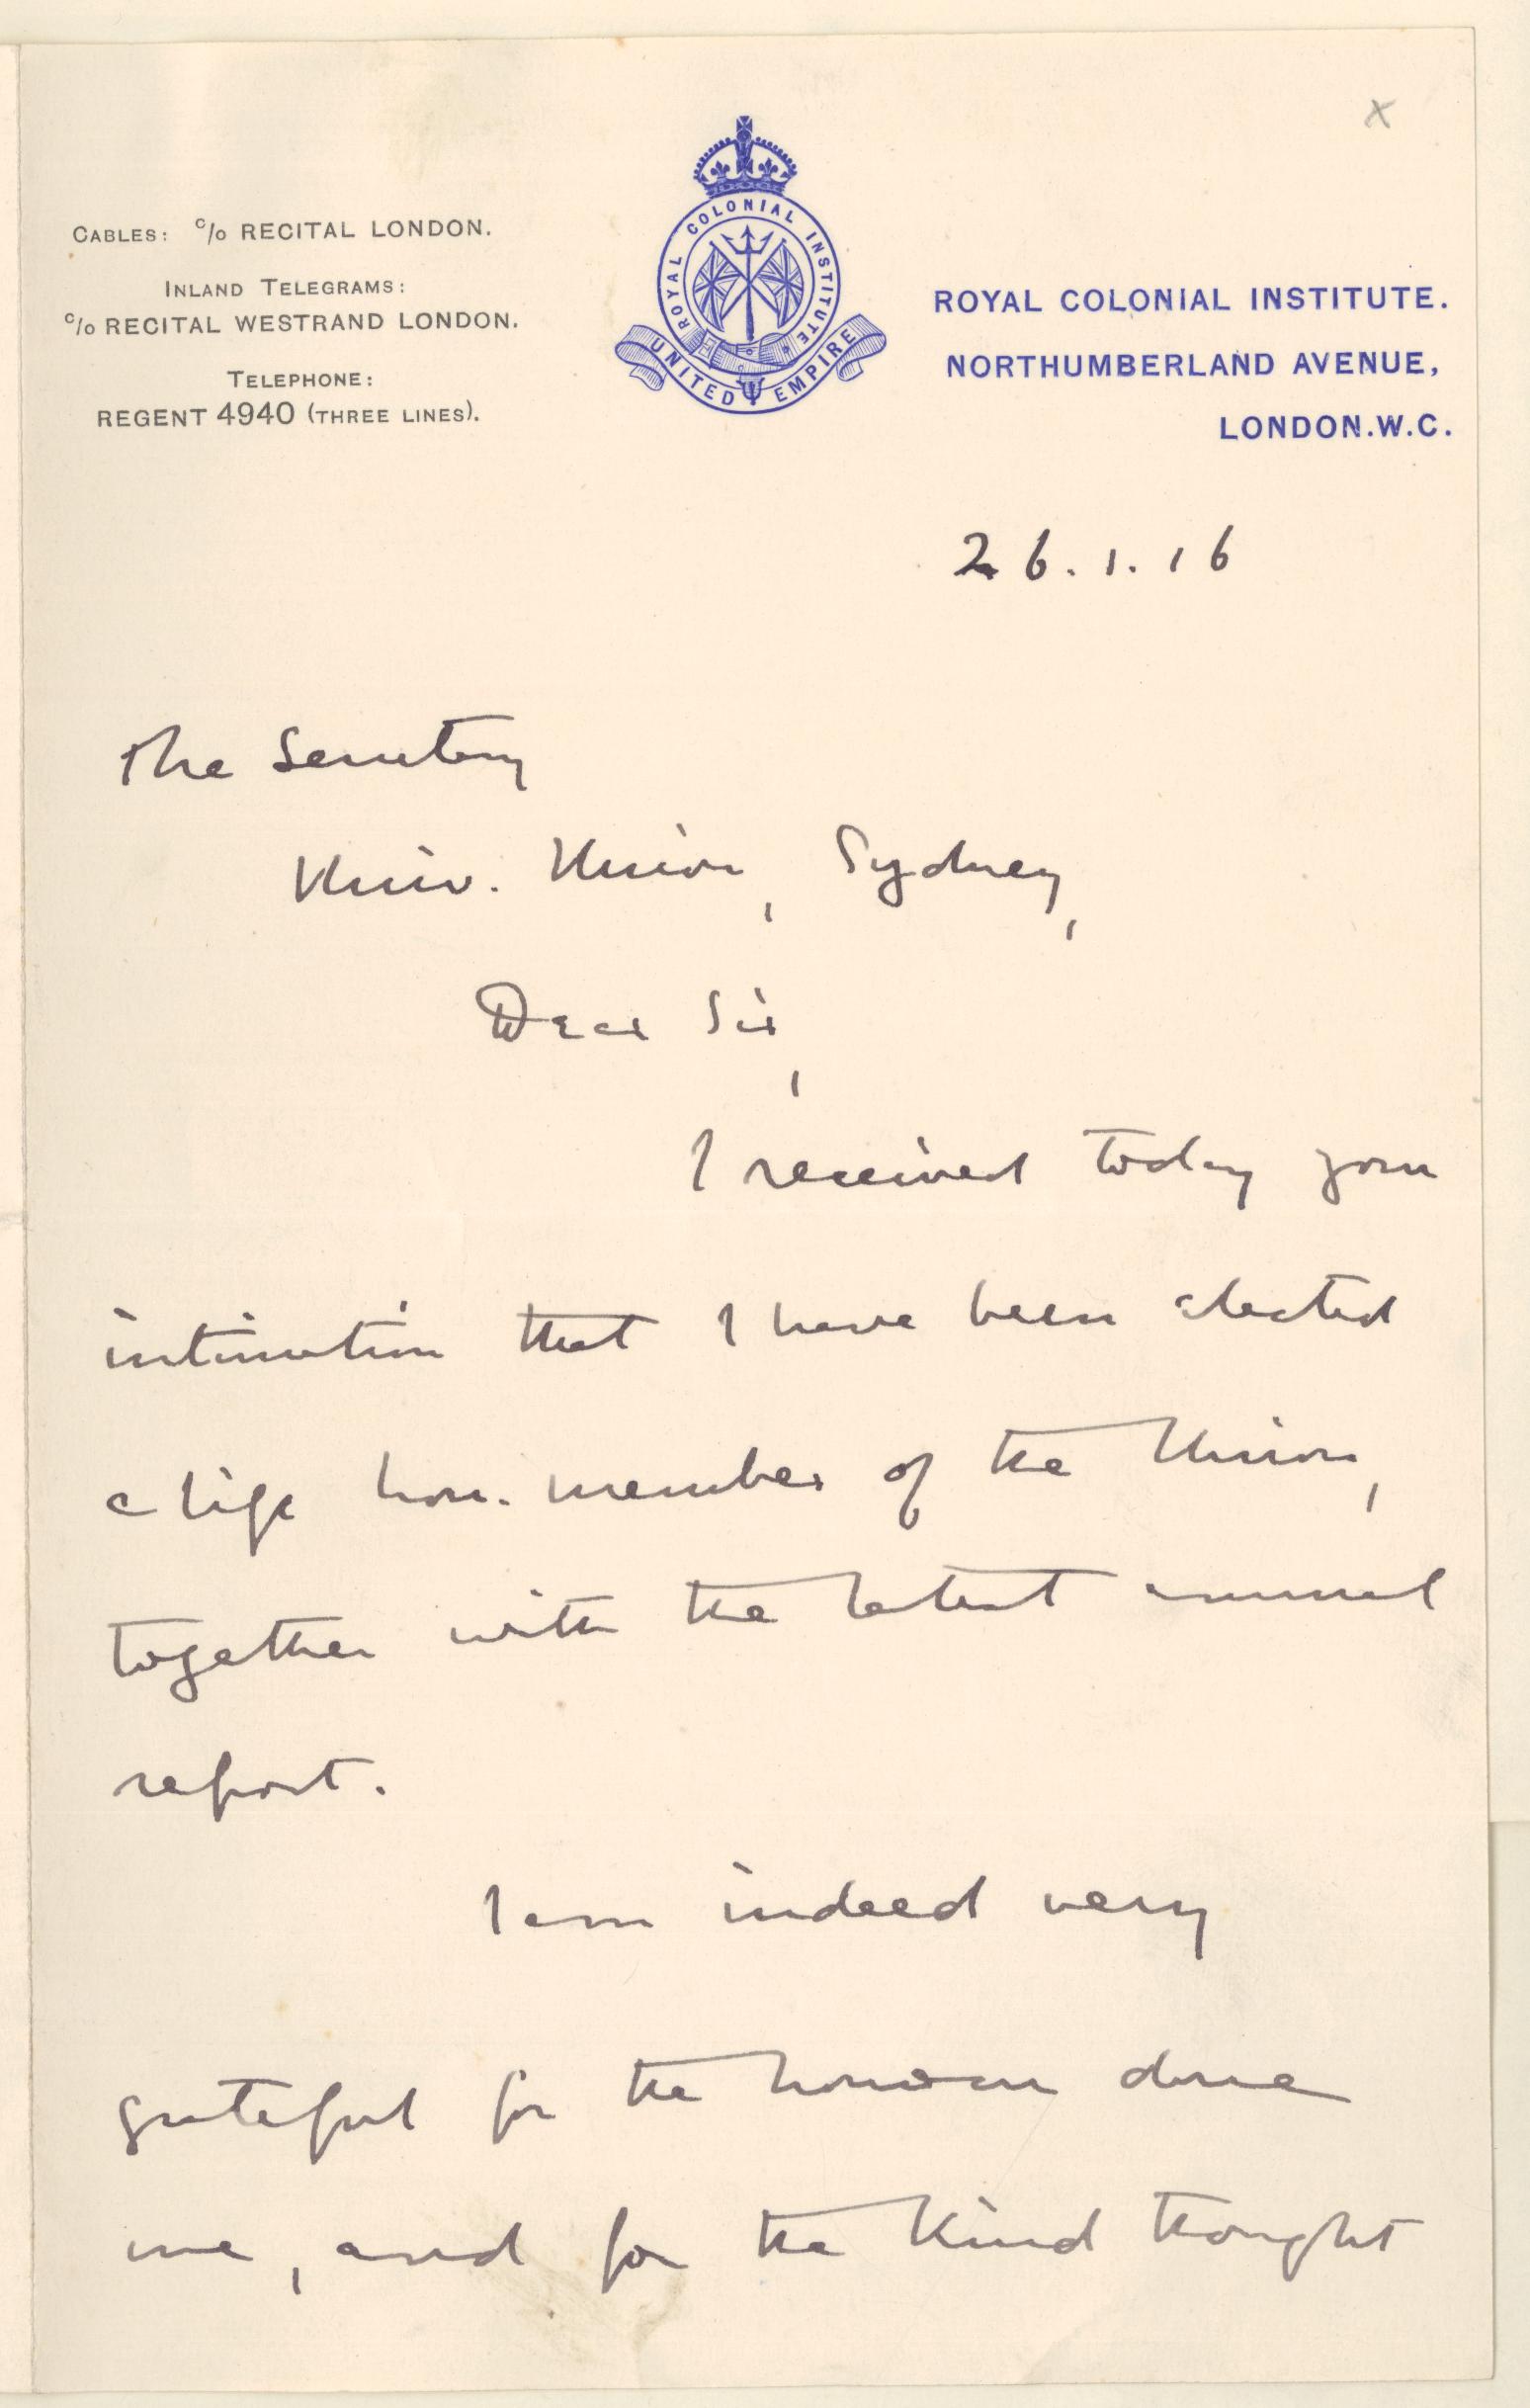 x
CABLES: c/o RECITAL LONDON.
INLAND TELEGRAMS:
c/o RECITAL WESTRAND LONDON.
TELEPHONE:
REGENT 4940 (THREE LINES).
ROYAL COLONIAL INSTITUTE
UNITED EMPIRE
ROYAL COLONIAL INSTITUTE.
NORTHUMBERLAND AVENUE,
LONDON.W.C.
26.1.16
The Secretary
Univ. Union, Sydney,
Dear Sir,
I received today your
intimation that I have been elected
a life hon. member of the Union,
together with the latest annual
report.
I am indeed very
grateful for the honour done
me, and for the kind thought